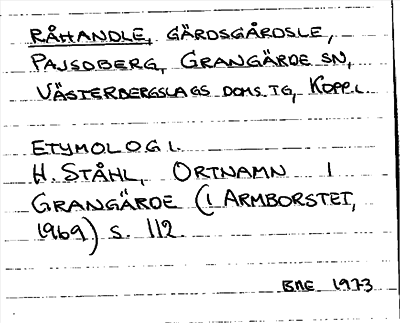 RÅHANDLE, GÄRDSGÅRDSLE,
PAJSOBERG, GRANGÄRDE SN,
VÄSTERBERGSLAGS DOMS.TG, KOPP.L.
ETYMOLOGI.
H. STÅHL, ORTNAMN I
GRANGÄRDE (I ARMBORSTET,
1969) S. 112.
BME 1973